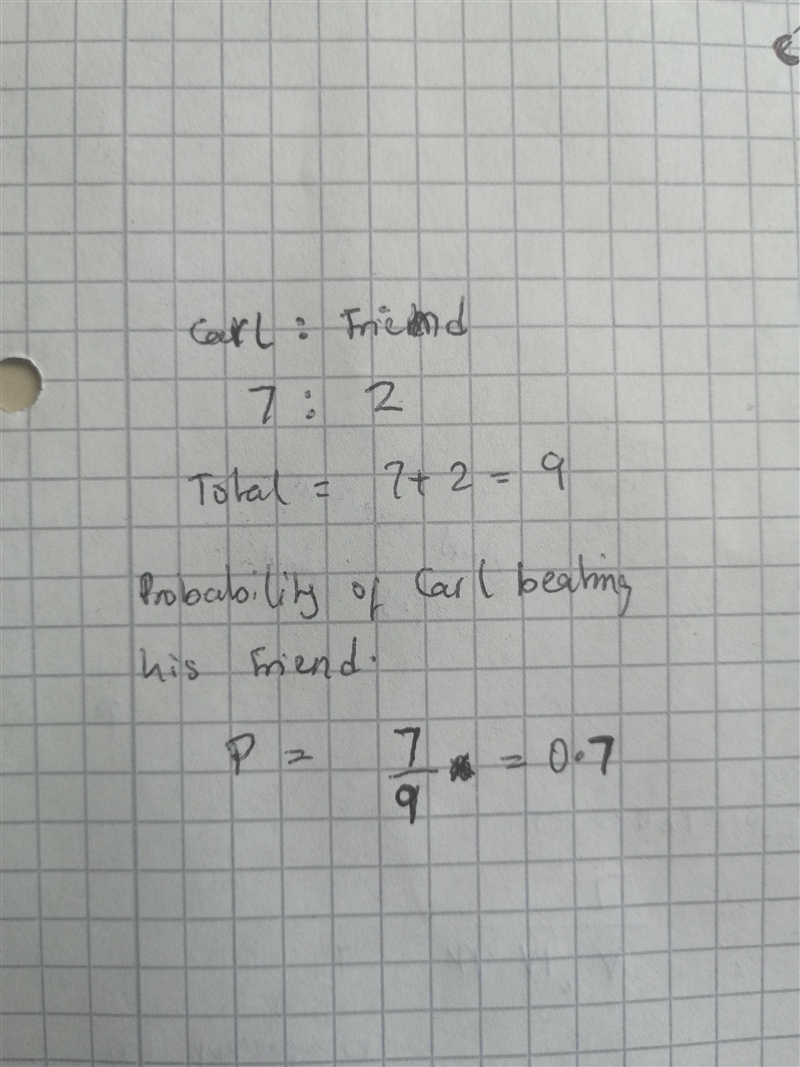 Carl : Friend
7 : 2
Total = 7+ 2 = 9
Probability of Carl beating
his Friend.
P = 7/9 = 0.7